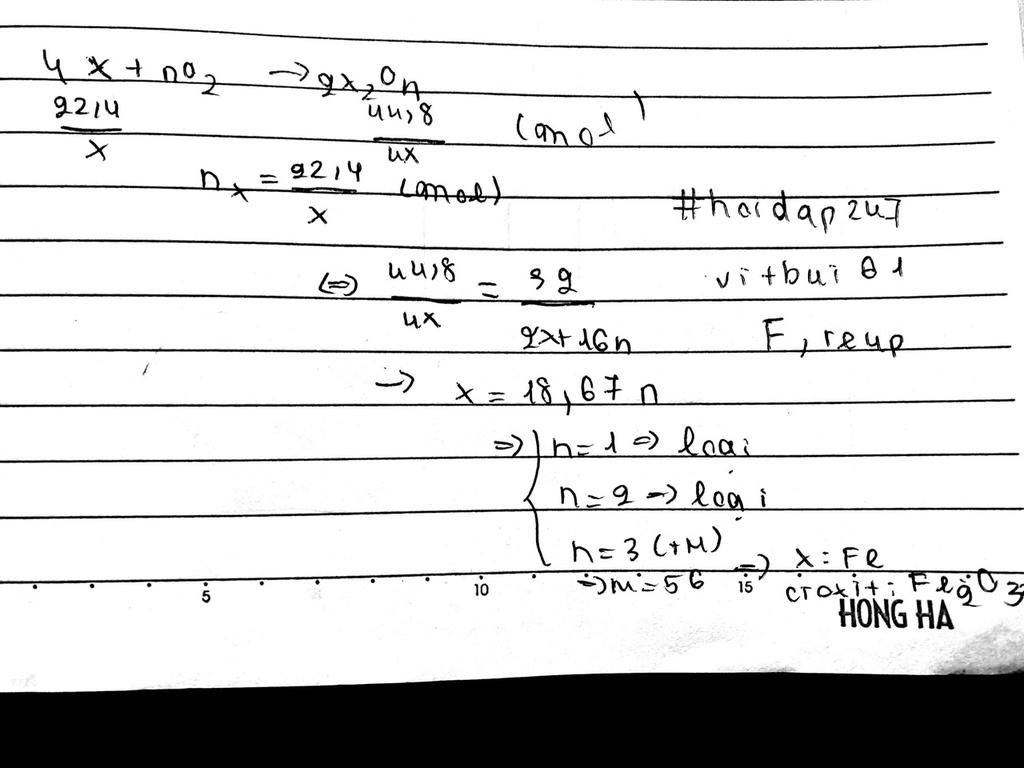 4 x + nO2 → 2x2On
22,4/x 44,8/4x (mol)
nx = 22,4/x (mol)
#hoidap247
<=> 44,8/4x = 32/2x+16n
vitbui01
F, reup
→ x = 18,67 n
=> { n = 1 => loại
n = 2 → loại
n = 3 (+M) => x : Fe
→ M = 56
5 10 15
HONG HA